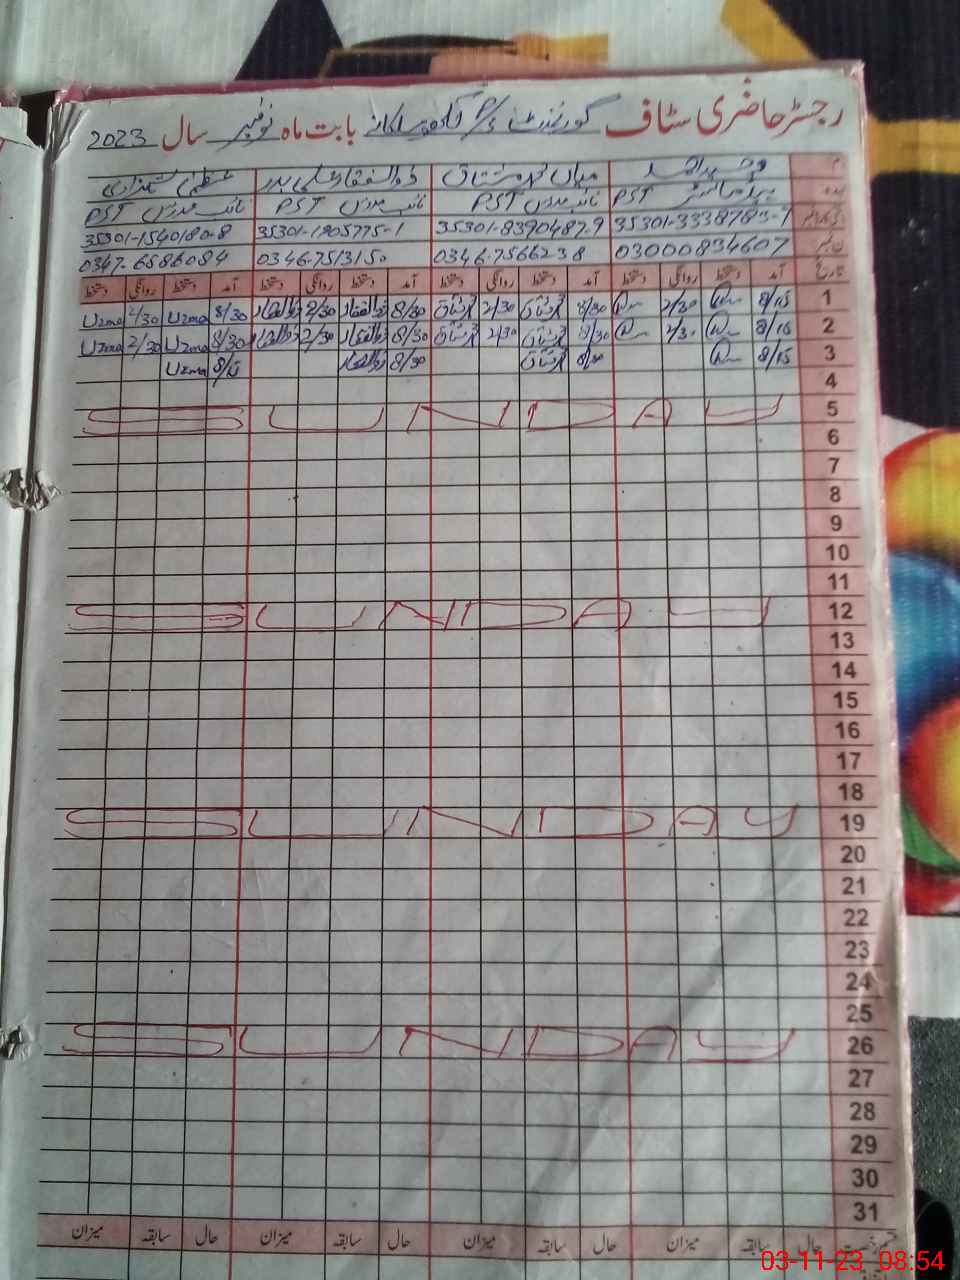 رجسٹر حاضری سٹاف گورنمنٹ P/S بابت ماہ نومبر سال 2023
وحید احمد میاں محمد مشتاق ذوالفقار علی بدر عظمیٰ
ہیڈ ماسٹر PST نائب مدرس PST نائب مدرس PST نائب مدرس PST
35301-3338783-9 35301-8390487-9 35301-1905775-1 35301-1540180-8
03000834607 0346-7566238 0346-7513150 0347-6586084
تاریخ آمد دستخط روانگی دستخط آمد دستخط روانگی دستخط آمد دستخط روانگی دستخط آمد دستخط روانگی دستخط
1 8/15 2/30 8/30 مشتاق 2/30 مشتاق 8/30 ذوالفقار 2/30 ذوالفقار 8/30 Uzma 2/30 Uzma
2 8/15 2/30 8/30 مشتاق 2/30 مشتاق 8/30 ذوالفقار 2/30 ذوالفقار 8/30 Uzma 2/30 Uzma
3 8/15 8/30 مشتاق 8/30 ذوالفقار 8/15 Uzma
4
5 SUNDAY
6
7
8
9
10
11
12 SUNDAY
13
14
15
16
17
18
19 SUNDAY
20
21
22
23
24
25
26 SUNDAY
27
28
29
30
31
حال سابقہ میزان حال سابقہ میزان حال سابقہ میزان حال سابقہ میزان
03-11-23 08:54